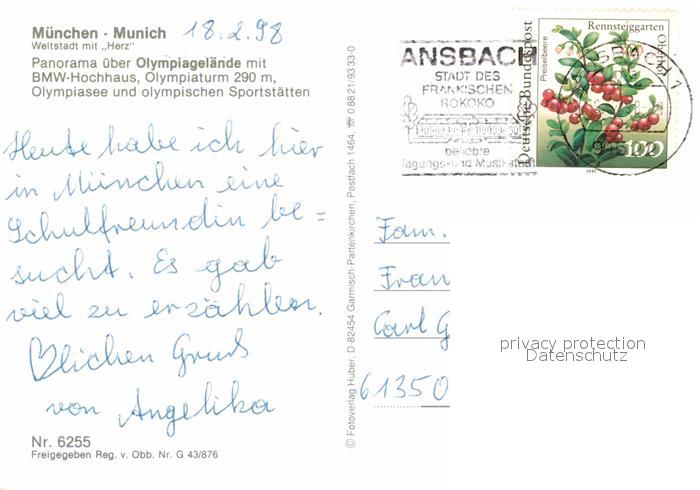 München · Munich 18.2.98
Weltstadt mit „Herz"
Panorama über Olympiagelände mit
BMW-Hochhaus, Olympiaturm 290 m,
Olympiasee und olympischen Sportstätten
Heute habe ich hier
in München eine
Schulfreundin be=
sucht. Es gab
viel zu erzählen.
♡lichen Gruß
von Angelika
Nr. 6255
Freigegeben Reg. v. Obb. Nr. G 43/876
© Fotoverlag Huber, D-82454 Garmisch-Partenkirchen, Postfach 1464, ☎ 08821/9333-0
ANSBACH
STADT DES
FRÄNKISCHEN
ROKOKO
beliebte
Tagungs- und Musikstadt
Deutsche Bundespost
Preiselbeere
Rennsteiggarten
Oberhof
100
1991
Fam.
Fran
Carl G
61350
privacy protection
Datenschutz